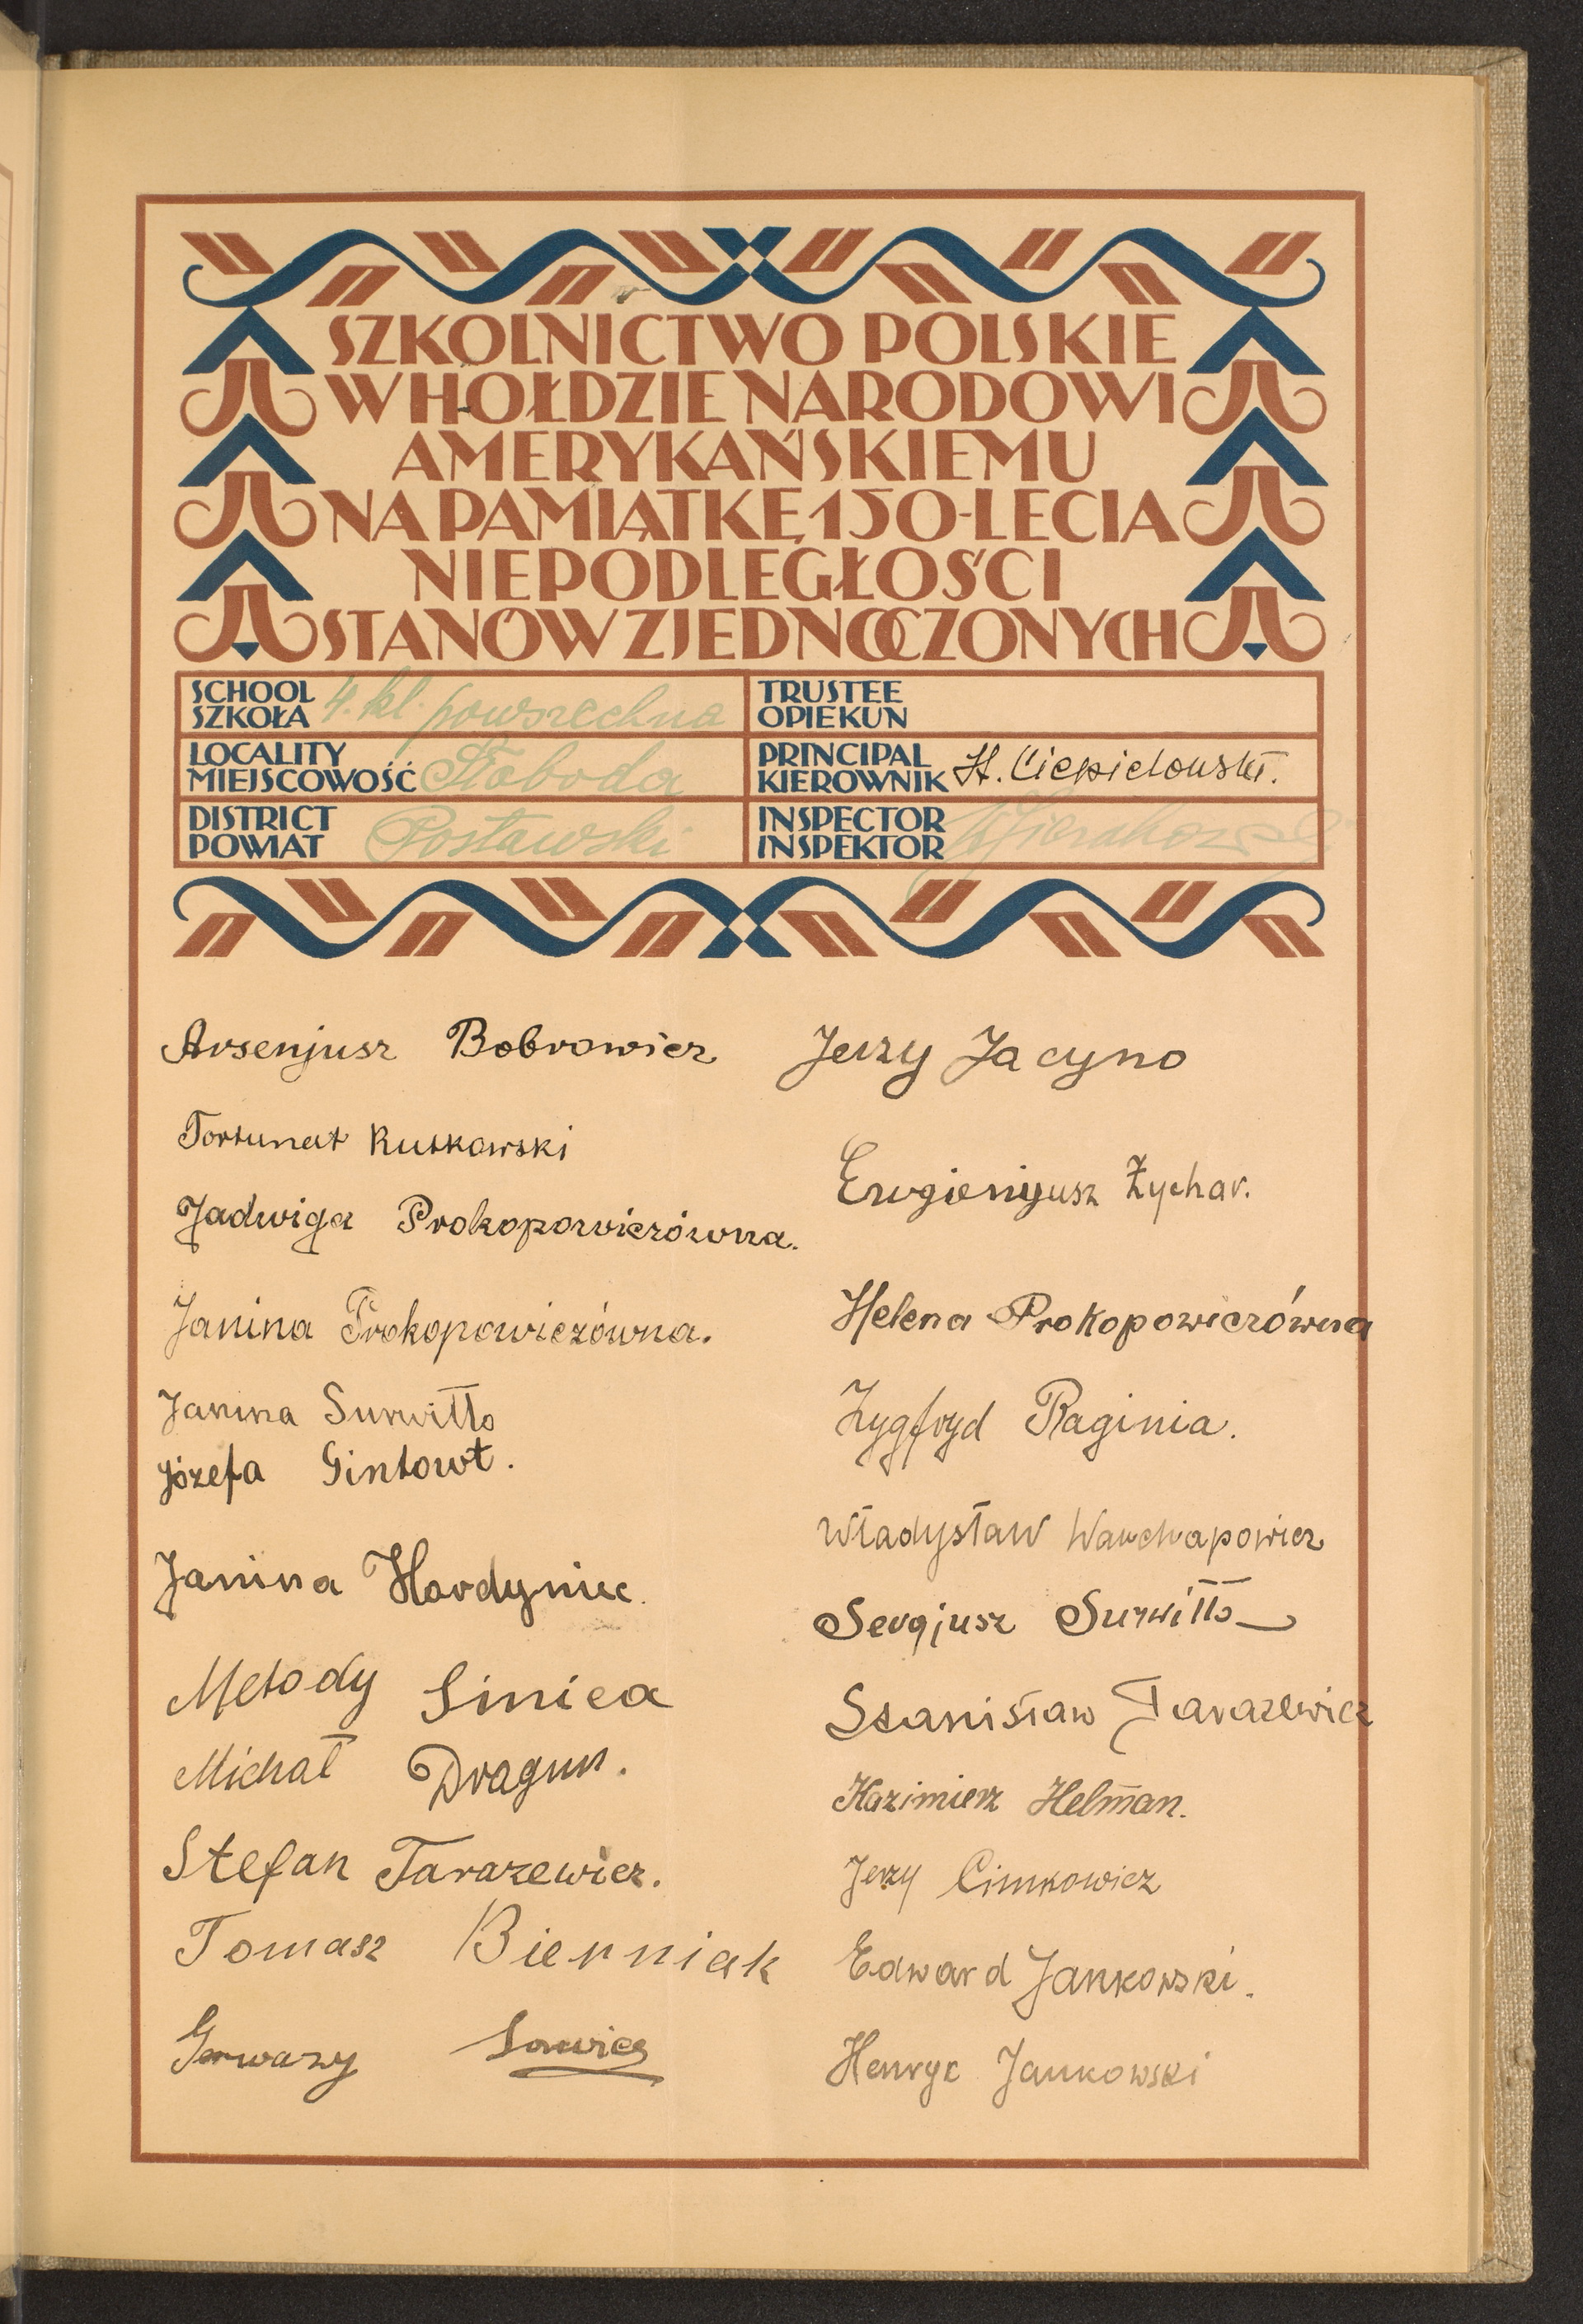 SZKOLNICTWO POLSKIE
W HOŁDZIE NARODOWI
AMERYKAŃSKIEMU
NA PAMIĄTKĘ 150-LECIA
NIEPODLEGŁOŚCI
STANÓW ZJEDNOCZONYCH
SCHOOL
SZKOŁA 4. kl. powszechna
LOCALITY
MIEJSCOWOŚĆ Słoboda
DISTRICT
POWIAT Postawski
TRUSTEE
OPIEKUN
PRINCIPAL
KIEROWNIK H. Ciepielowski.
INSPECTOR
INSPEKTOR
Arsenjusz Bobrowicz
Fortunat Rutkowski
Jadwiga Prokopowiczówna.
Janina Prokopowiczówna.
Janina Surwiłło
Józefa Gintowt.
Janina Hordyniec.
Metody Sinica
Michał Dragun.
Stefan Tarazewicz.
Tomasz Bierniak
Gerwazy Sawicz
Jerzy Jacyno
Ewgieniyusz Żychar.
Helena Prokopowiczówna
Zygfryd Raginia.
Władysław Warchapowicz
Sergjusz Surwiłło
Stanisław Tarazewicz
Kazimierz Helman.
Jerzy Cimkowicz
Edward Jankowski.
Henryc Jankowski